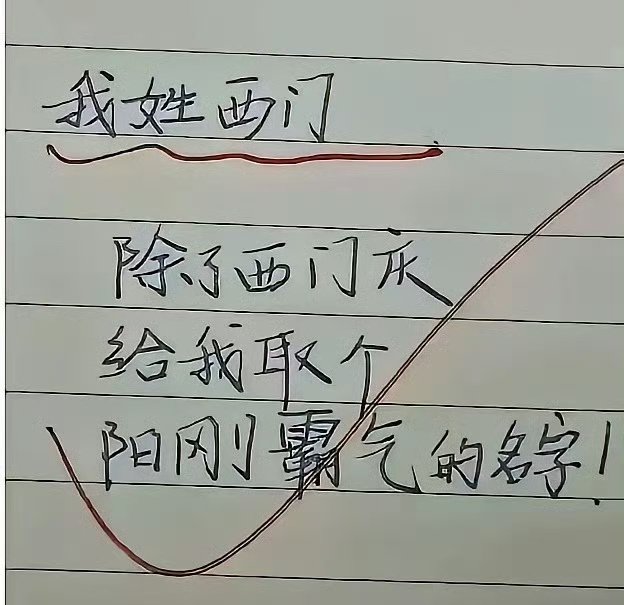 我姓西门
除了西门庆
给我取个
阳刚霸气的名字!